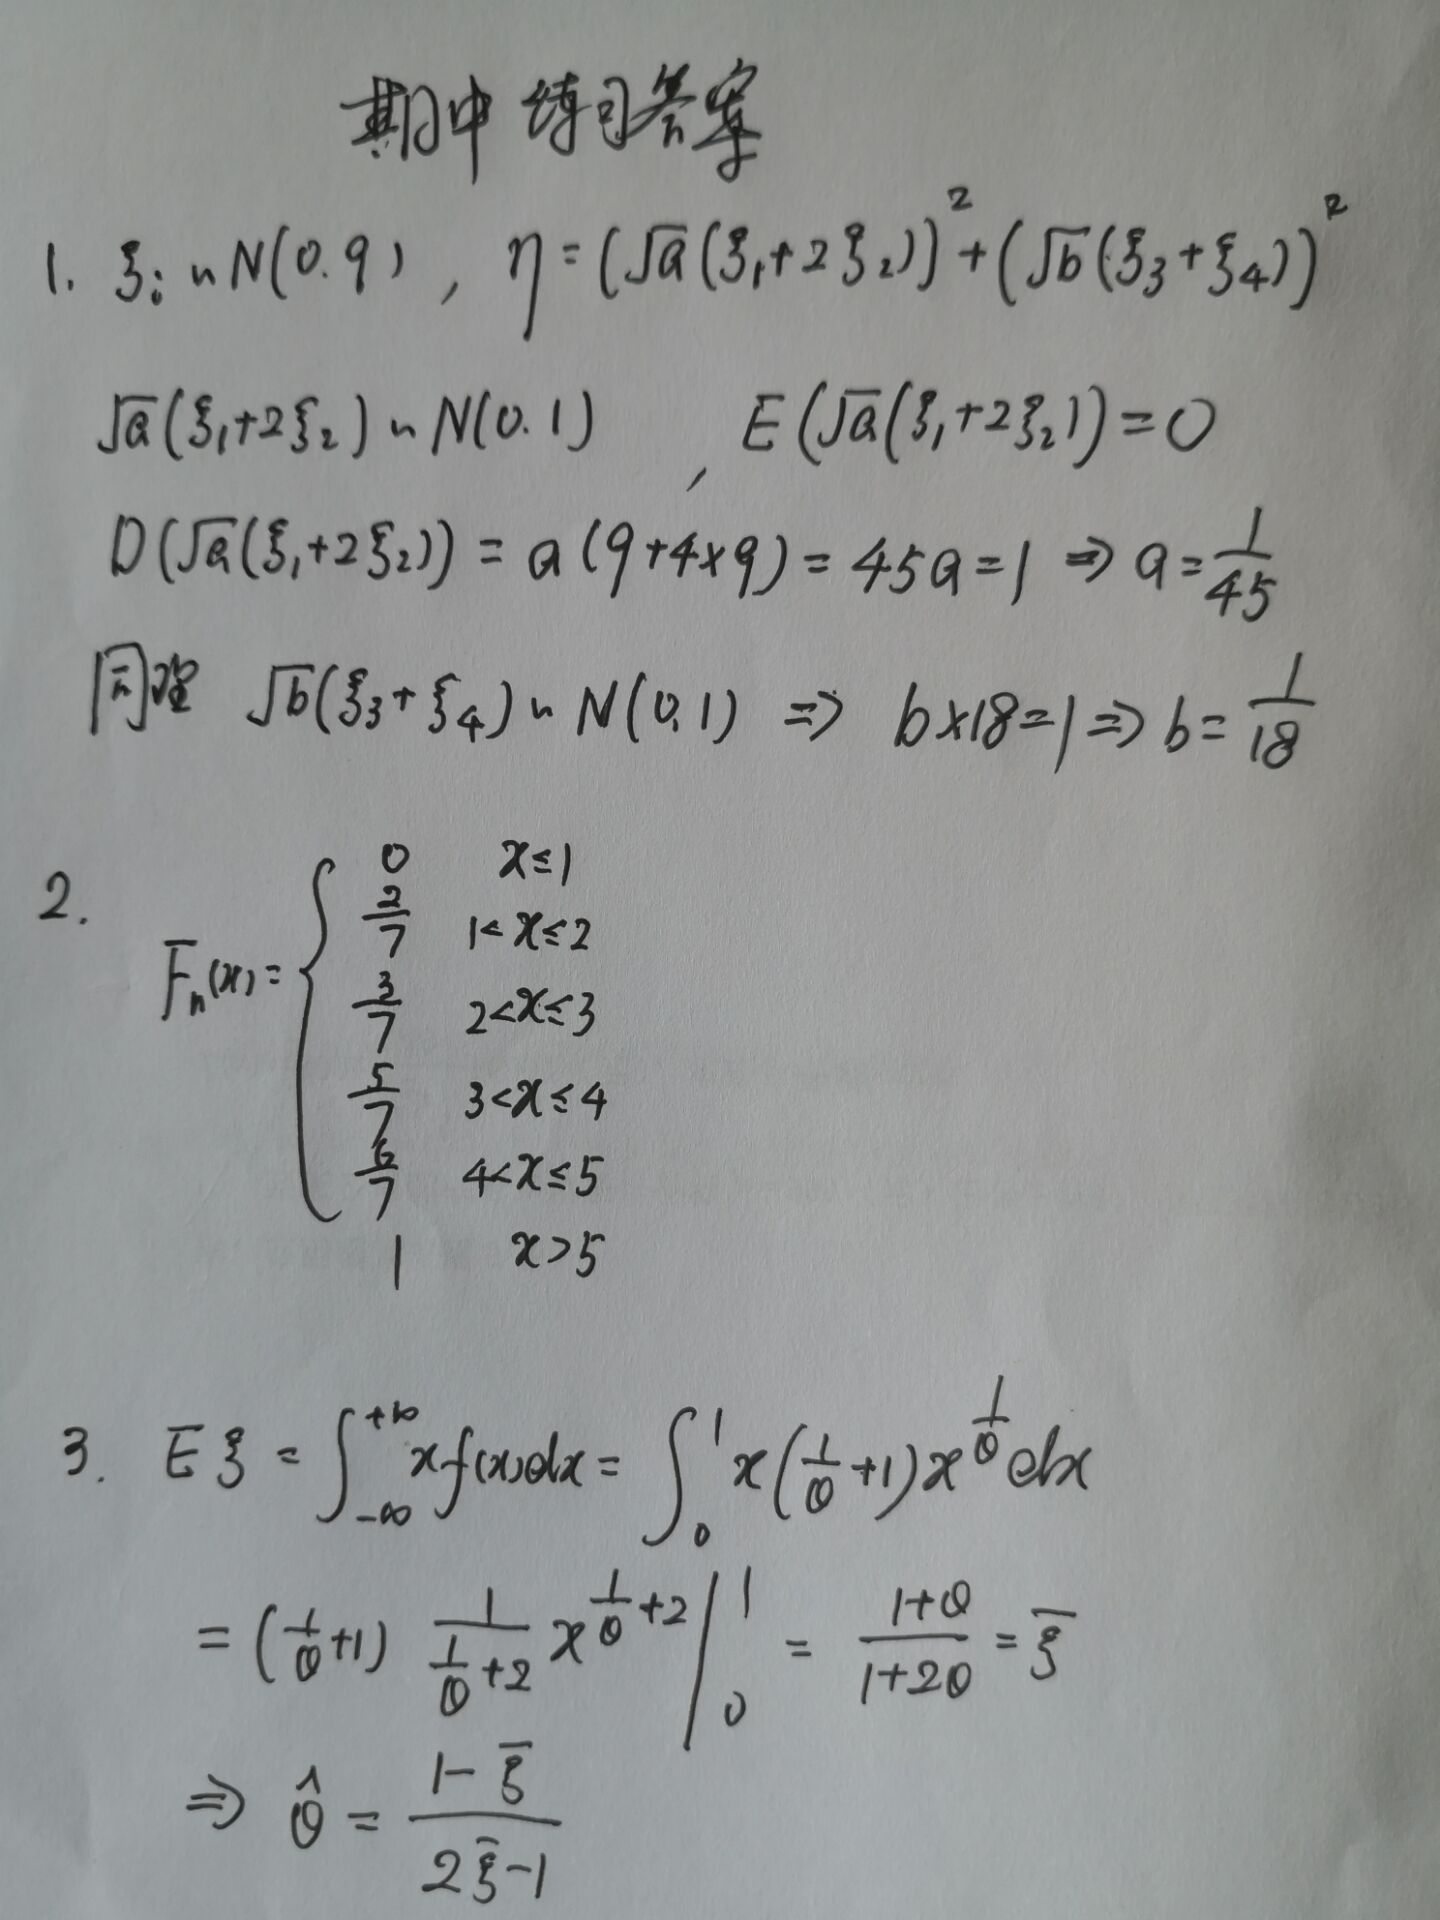 期中练习答案
1. ξi ~ N(0.9), η = (√a(ξ₁+2ξ₂))² + (√b(ξ₃+ξ₄))²
√a(ξ₁+2ξ₂) ~ N(0.1) , E(√a(ξ₁+2ξ₂)) = 0
D(√a(ξ₁+2ξ₂)) = a(9+4×9) = 45a = 1 ⇒ a = 1/45
同理 √b(ξ₃+ξ₄) ~ N(0,1) ⇒ b×18=1 ⇒ b = 1/18
2.
0 x≤1
2/7 1<x≤2
Fn(x) = { 3/7 2<x≤3
5/7 3<x≤4
6/7 4<x≤5
1 x>5
3. Eξ = ∫_{-∞}^{+∞} x f(x)dx = ∫_0^1 x(1/θ+1)x^{1/θ} dx
= (1/θ+1) 1/(1/θ+2) x^{1/θ+2} |_0^1 = (1+θ)/(1+2θ) = ξ̄
⇒ θ̂ = (1-ξ̄)/(2ξ̄-1)